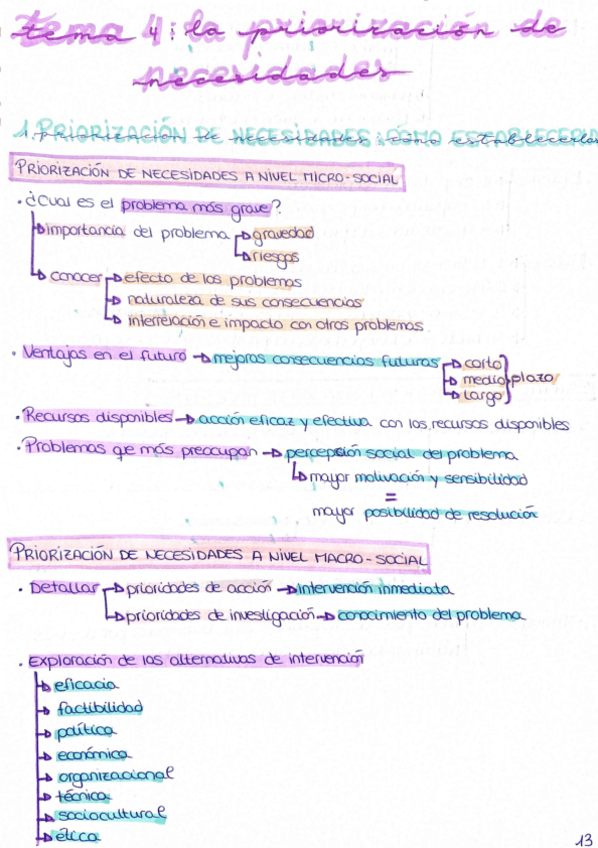 tema 4: la priorización de
necesidades
1. PRIORIZACIÓN DE NECESIDADES: CÓMO ESTABLECERLA
PRIORIZACIÓN DE NECESIDADES A NIVEL MICRO-SOCIAL
· ¿Cuál es el problema más grave?
importancia del problema → gravedad
→ riesgos
conocer → efecto de los problemas
→ naturaleza de sus consecuencias
→ interrelación e impacto con otros problemas.
· Ventajas en el futuro → mejoras consecuencias futuras → corto
→ medio } plazo
→ largo
· Recursos disponibles → acción eficaz y efectiva con los recursos disponibles
· Problemas qe más preocupan → percepción social del problema
↳ mayor motivación y sensibilidad
=
mayor posibilidad de resolución
PRIORIZACIÓN DE NECESIDADES A NIVEL MACRO-SOCIAL
· Detallar → prioridades de acción → intervención inmediata
→ prioridades de investigación → conocimiento del problema
· Exploración de las alternativas de intervención
→ eficacia
→ factibilidad
→ política
→ económica
→ organizacional
→ técnica
→ sociocultural
→ ética
13